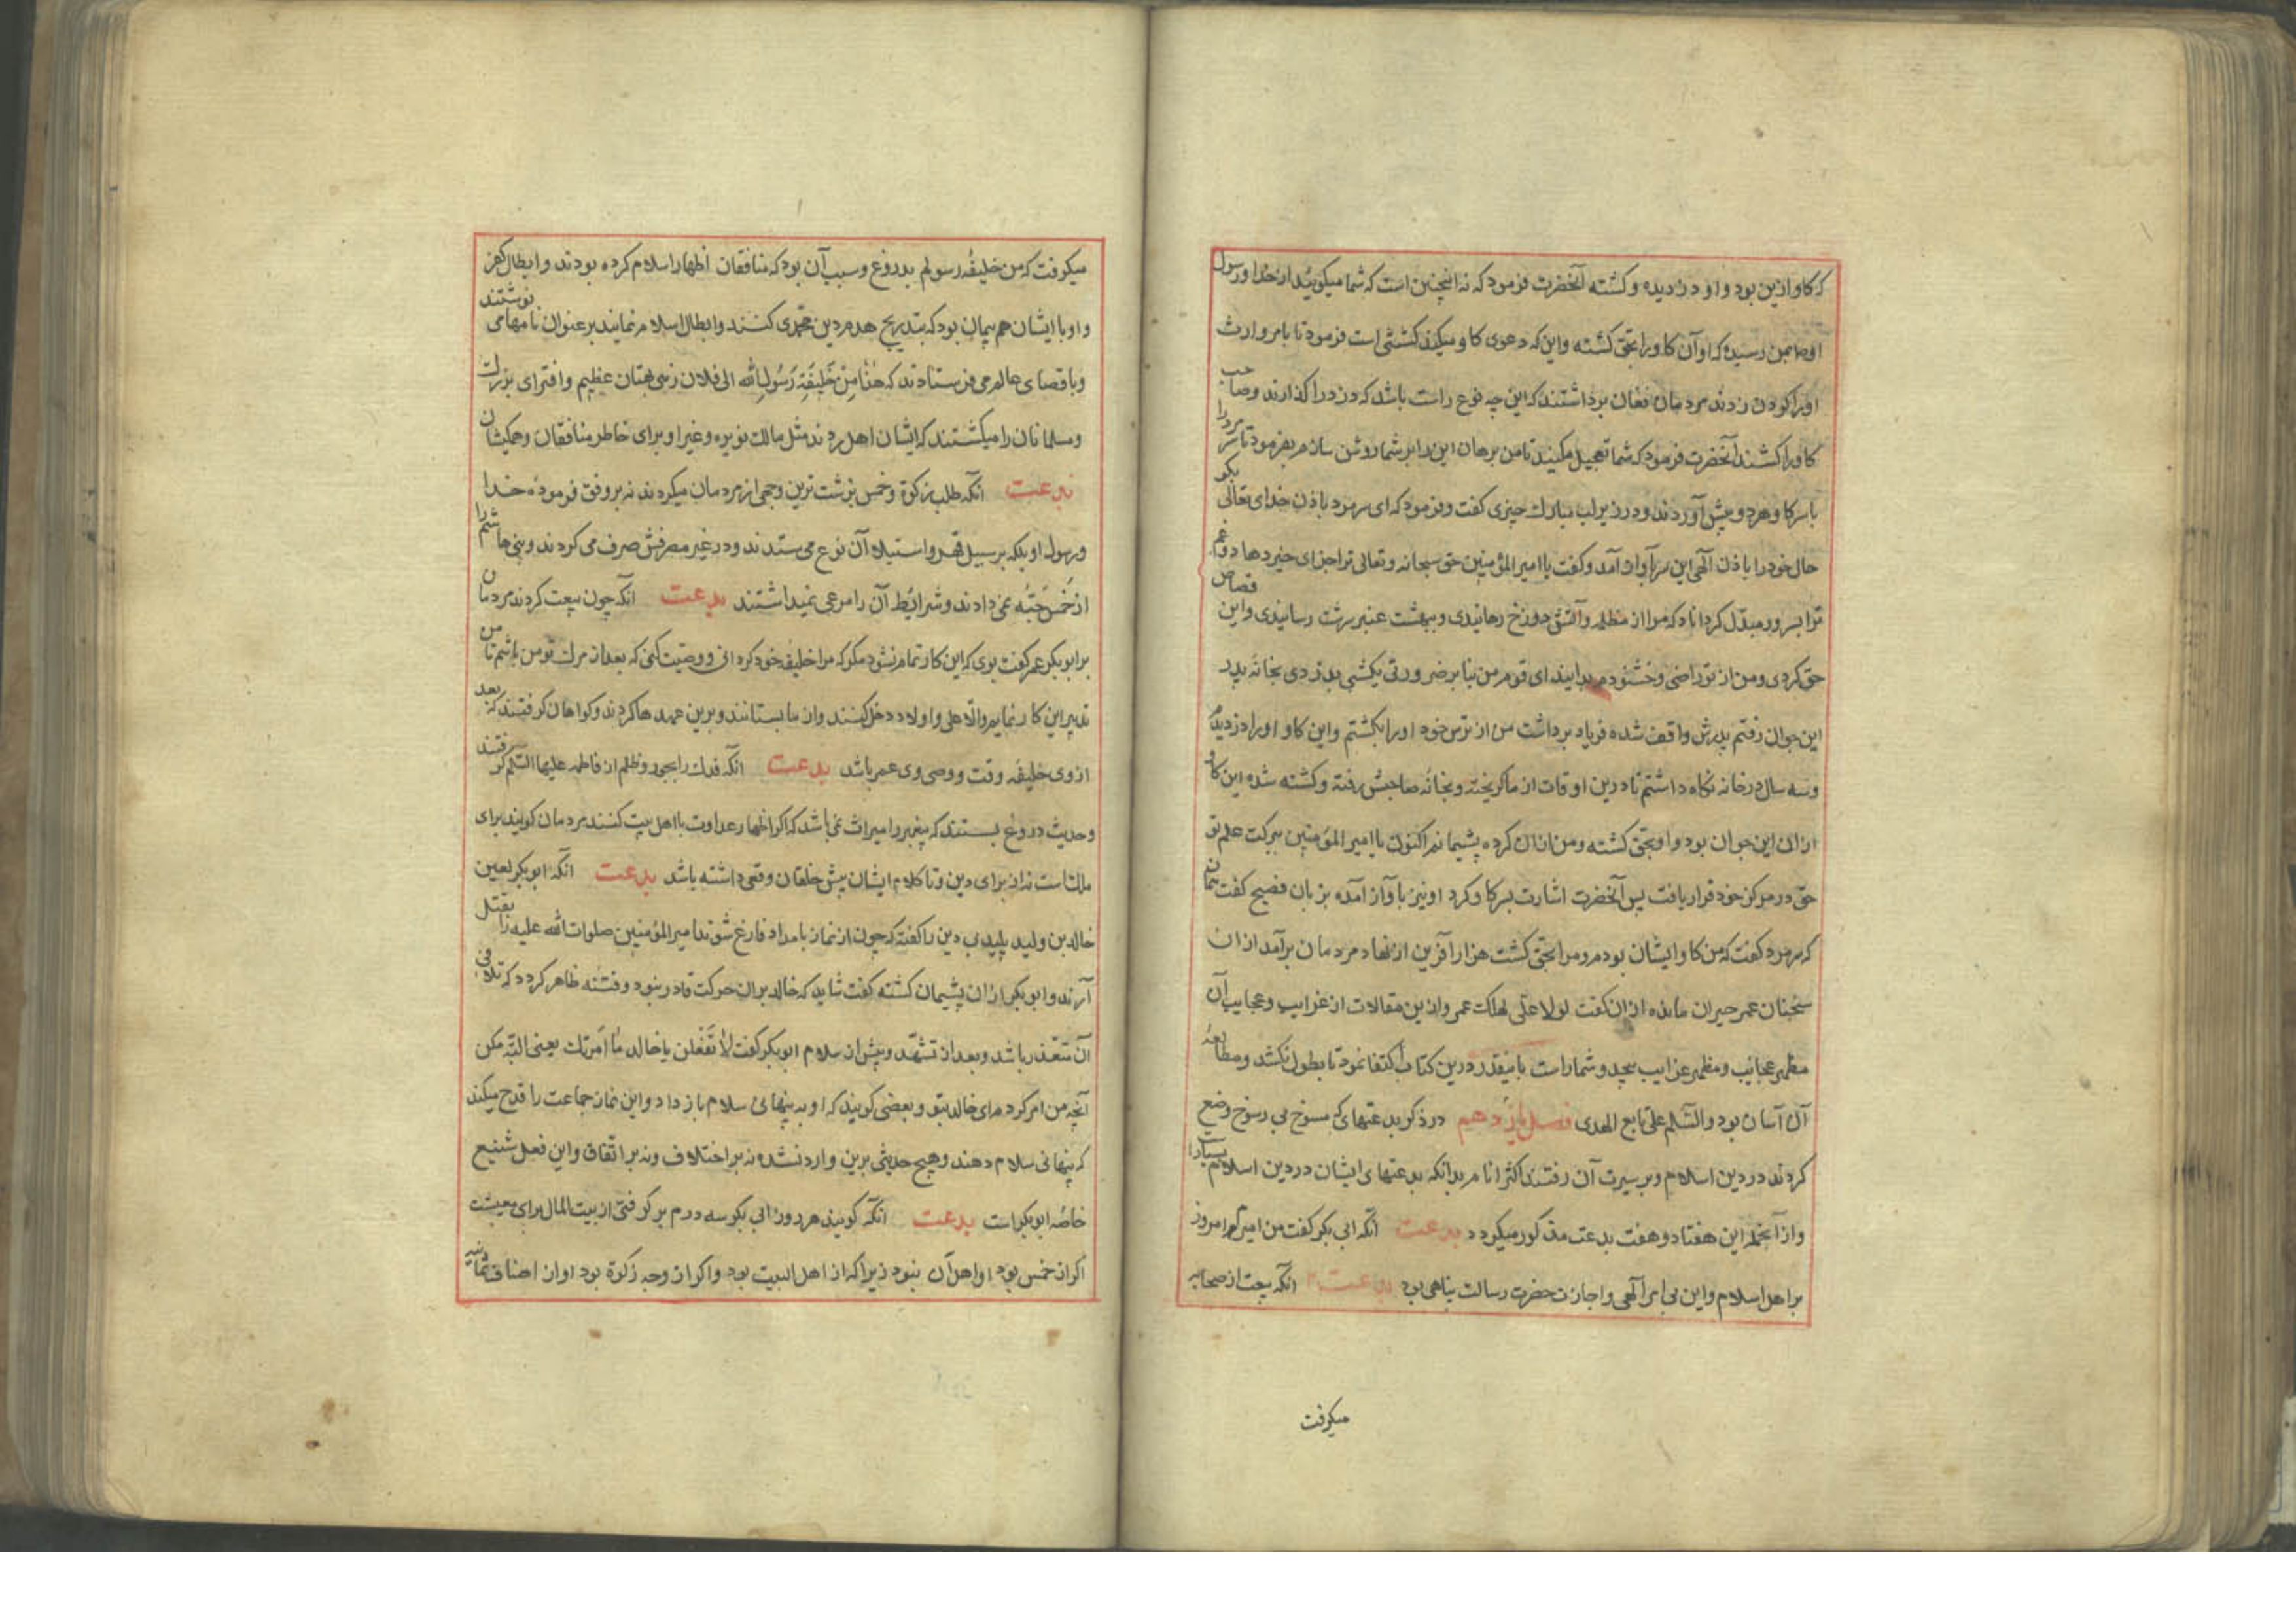 که کاو ازین بود و او دزدیده و کشته آنحضرت فرمود که نه اینچنین است که شما میکوئید از خدا و رسول
او بمن رسیده که او آن کاو را بحق کشته و این که دعوی کاو میکند کشتنی است فرمود تا بامر وارث
او را کردن زدند مردمان فغان برداشتند که این چه نوع راست باشد که دزد را کذارند و صاحب
کاو را کشند آنحضرت فرمود که شما تعجیل مکنید تا من برهان این را بر شما روشن سازم بفرمود تا سر مرد را
با سر کاو هر دو پیش آوردند و در زیر لب مبارک چیزی کفت و فرمود که ای سر مرد باذن خدای تعالی بکو
حال خود را باذن آلهی این سر بآواز آمد و کفت یا امیر المؤمنین حق سبحانه و تعالی ترا جزای خیر دهاد و غم
ترا بسرور مبدّل کرداناد که مرا از مظلمه و آتش دوزخ رهانیدی و ببهشت عنبر سرشت رسانیدی و این قصاص
حق کردی و من از تو راضی و خشنودم بدانید ای قوم من بنا بر ضرورتی یکشبی بدزدی بخانه پدر
این جوان رفتم پدرش واقف شده فریاد برداشت من از ترس خود او را بکشتم و این کاو او را دزدیدم
و سه سال در خانه نکاه داشتم تا درین اوقات از ما کریخته و بخانه صاحبش رفته و کشته شده این کاو
از ان این جوان بود و او بحق کشته و من از ان کرده پشیمانم اکنون یا امیر المؤمنین ببرکت علم تو
حق در مرکز خود قرار یافت پس آنحضرت اشارت بسر کاو کرد او نیز بآواز آمده بزبان فصیح کفت
که سر مرد کفت که من کاو ایشان بودم و مرا بحق کشت هزار آفرین از نهاد مردمان برآمد از ان
سخنان عمر حیران مانده از ان کفت لولا علی لهلک عمر و ازین مقالات از غرایب و عجایب آن
مظهر عجائب و مظهر غرایب بیحد و شمار است باینقدر درین کتاب اکتفا نمود تا بطول نکشد و مطالعهٔ
آن آسان بود والسّلم علی تابع الهدی فصل یازدهم در ذکر بدعتهای که مسوخ بی رسوخ وضع
کردند در دین اسلام و بر سیرت آن رفتند اکثر انام بدانکه بدعتهای ایشان در دین اسلام بسیار
و از آنجمله این هفتاد و هفت بدعت مذکور میکردد بدعت آنکه ابی بکر کفت من امیرم امروز
بر اهل اسلام و این بی امر آلهی و اجازت حضرت رسالت پناهی بود بدعت ۲ انکه بیعت از صحابه
میکرفت
میکرفت که من خلیفهٔ رسولم بدروغ و سبب آن بود که منافقان اظهار اسلام کرده بودند و ابطال کفر
و او با ایشان هم پیمان بود که بتدریج هدم دین محمّدی کنند و ابطال اسلام نمایند بر عنوان نامها می نوشتند
و باقصای عالم می فرستادند که هٰذا مِنْ خَلیفَةِ رَسُولِ اللّه الی فلان زهی بهتان عظیم و افترای بزرک
و مسلمانان را میکشتند که ایشان اهل ردند مثل مالک نویره و غیر او برای خاطر منافقان و همکیشان
بدعت انکه طلب زکوة و خمس بزشت ترین وجهی از مردمان میکردند نه بر وفق فرمودهٔ خدا
و رسول او بلکه بر سبیل قهر و استیلا آن نوع می ستدند و در غیر مصرفش صرف می کردند و بنی هاشم را
از خُمس حَبّه نمی دادند و شرائط آن را مرعی نمیداشتند بدعت انکه چون بیعت کردند مردمان
بر ابو بکر عمر کفت بوی که این کار تمام نشود مکر که مرا خلیفه خود کردانی و وصیّت کنی که بعد از مرک تو من باشم تا من
تدبیر این کار نمایم و الّا علی و اولاد دخل کنند و از ما بستانند و برین عهدها کردند و کواهان کرفتند که بعد
از وی خلیفه وقت و وصی وی عمر باشد بدعت انکه فدک را بجور و ظلم از فاطمه علیها السّلم کرفتند
و حدیث دروغ بستند که پیغمبر را میراث نمی باشد که اکر اظهار عداوت با اهل بیت کنند مردمان کویند برای
ملکست نه از برای دین و تا کلام ایشان پیش خلقان وقعی داشته باشد بدعت انکه ابو بکر لعین
خالد بن ولید پلید بی دین را کفته که چون از نماز بامداد فارغ شوند امیر المؤمنین صلوات الله علیه را بقتل
آرند و ابو بکر از ان پشیمان کشته کفت شاید که خالد بران حرکت قادر نبود و فتنه ظاهر کردد که تلافی
آن متعذر باشد و بعد از تشهّد و پیش از سلام ابو بکر کفت لا تَفْعَلن یا خالد ما اَمرْتک یعنی البتّه مکن
آنچه من امر کردم ای خالد بتو و بعضی کویند که او به پنهانی سلام باز داد و این نماز جماعت را قدح میکند
که پنهانی سلام دهند و هیچ حدیثی برین وارد نشده نه بر اختلاف و نه بر اتّفاق و این فعل شنیع
خاصّه ابو بکر است بدعت انکه کویند هر روز ابی بکر سه درم بر کرفتی از بیت المال برای معیشت
اکر از خمس بود او اهل آن نبود زیرا که از اهل البیت بود و اکر از وجه زکوة بود او از اصناف ثمانیه